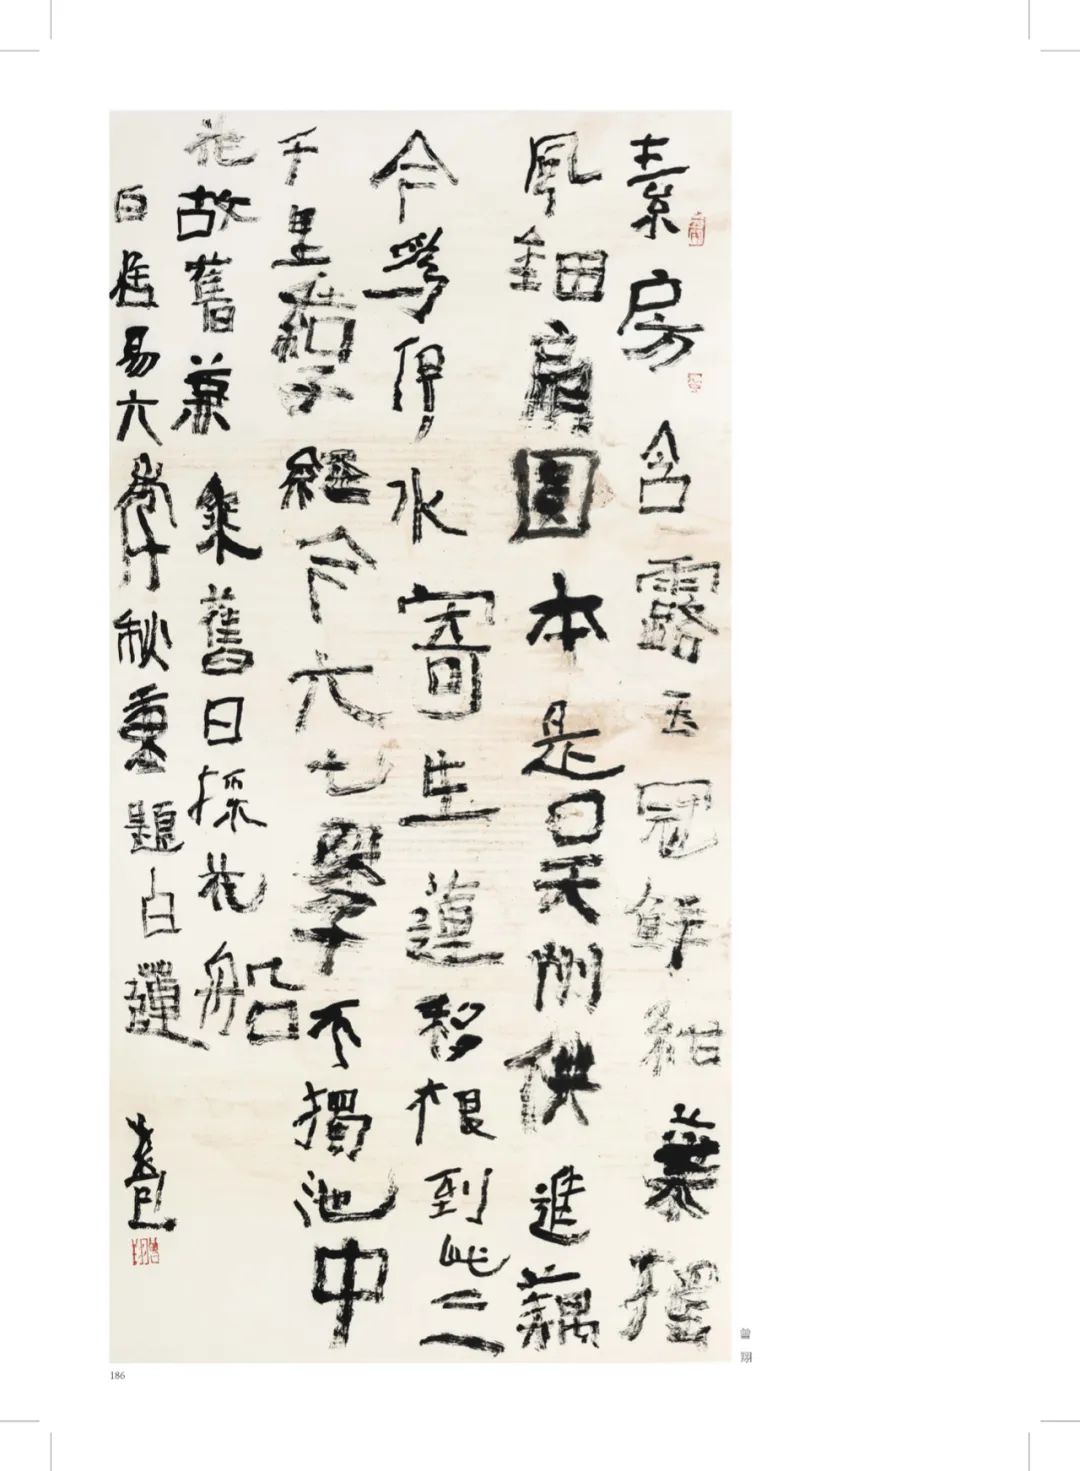 素房含露玉冠鮮紺葉搖
風鈿扇圓本是吳州供進藕
今爲伊水寄生蓮移根到此三
千里結子經今六七年不獨池中
花故舊兼乘舊日採花船
白居易六年秋重題白蓮
曾翔
曾翔
186